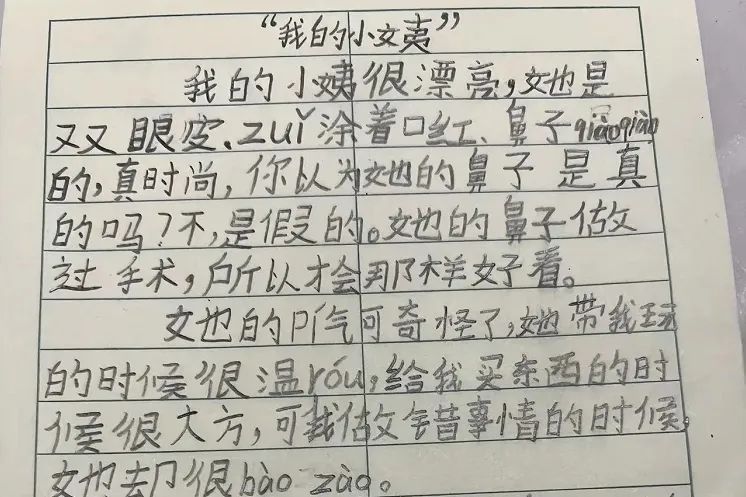 “我的小姨”
我的小姨很漂亮,她是
双眼皮、zuǐ涂着口红、鼻子qiàoqiào
的,真时尚,你以为她的鼻子是真
的吗?不,是假的。她的鼻子做
过手术,所以才会那样好看。
她的pí气可奇怪了,她带我玩
的时候很温róu,给我买东西的时
候很大方,可我做错事情的时候,
她却很bào zào。